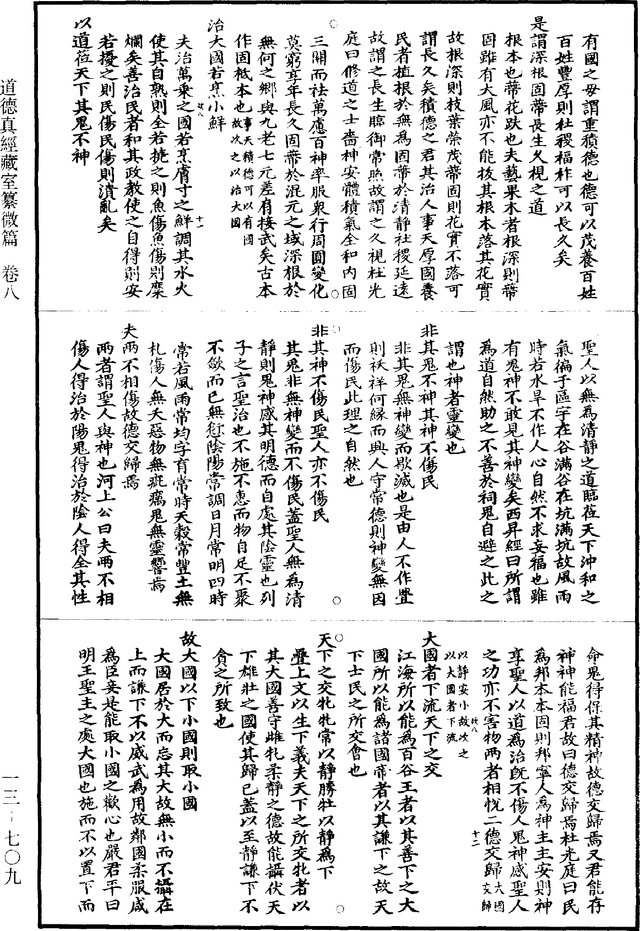 有國之母謂重積德也德可以茂養百姓
百姓豐厚則社稷福祚可以長久矣
是謂深根固蔕長生久視之道
根本也蔕花趺也夫藝果木者根深則蔕
固雖有大風亦不能拔其根本落其花實
故根深則枝葉榮茂蔕固則花實不落可
謂長久矣積德之君其治人事天厚國養
民者植根於無為固蔕於清静社稷延遠
故謂之長生臨御常照故謂之久視杜光
庭曰修道之士嗇神安體積氣全和内固
三關而祛萬慮百神率服衆行周圓變化
莫窮享年長久固蔕於混元之域深根於
無何之鄉與九老七元差肩接武矣古本
作固柢本也事天積德可以有國故次之以治大國
治大國若烹小鮮
夫治萬乘之國若烹膚寸之鮮調其水火
使其自熟則全若撓之則魚傷魚傷則糜
爛矣善治民者和其政教使之自得則安
若擾之則民傷民傷則潰亂矣
以道莅天下其鬼不神
聖人以無為清静之道臨莅天下沖和之
氣徧于區宇在谷滿谷在坑滿坑故風雨
時若水旱不作人心自然不求妄福也雖
有鬼神不敢見其神變矣西昇經曰所謂
為道自然助之不善於祠鬼自避之此之
謂也神者靈變也
非其鬼不神其神不傷民
非其鬼無神變而歇滅也是由人不作舋
則祆祥何緣而興人守常德則神變無因
而傷民此理之自然也
非其神不傷民聖人亦不傷民
其鬼非無神變而不傷民蓋聖人無為清
静則鬼神感其明德而自處其陰靈也列
子之言聖治也不施不惠而物自足不聚
不斂而己無愆陰陽常調日月常明四時
常若風雨常均字育常時天穀常豐土無
札傷人無夭惡物無疵癘鬼無靈響焉
夫兩不相傷故德交歸焉
兩者謂聖人與神也河上公曰夫兩不相
傷人得治於陽鬼得治於陰人得全其性
命鬼得保其精神故德交歸焉又君能存
神神能福君故曰德交歸焉杜光庭曰民
為邦本本固則邦寧人為神主主安則神
享聖人以道為治既不傷人鬼神感聖人
之功亦不害物兩者相悦二德交歸大國交歸
以静安小故次之以大國者下流
大國者下流天下之交
江海所以能為百谷王者以其善下之大
國所以能為諸國帝者以其謙下之故天
下士民之所交會也
天下之交牝牝常以静勝牡以静為下
疊上文以生下義夫天下之所交牝者以
其大國善守雌牝柔静之德故能攝伏天
下雄壯之國使其歸已蓋以至静謙下不
貪之所致也
故大國以下小國則取小國
大國居於大而忘其大故無小而不攝在
上而謙下不以威武為用故鄰國柔服咸
為臣妾是能取小國之歡心也嚴君平曰
明王聖主之處大國也施而不以置下而
道德真經藏室纂微篇　卷八
一三-七〇九